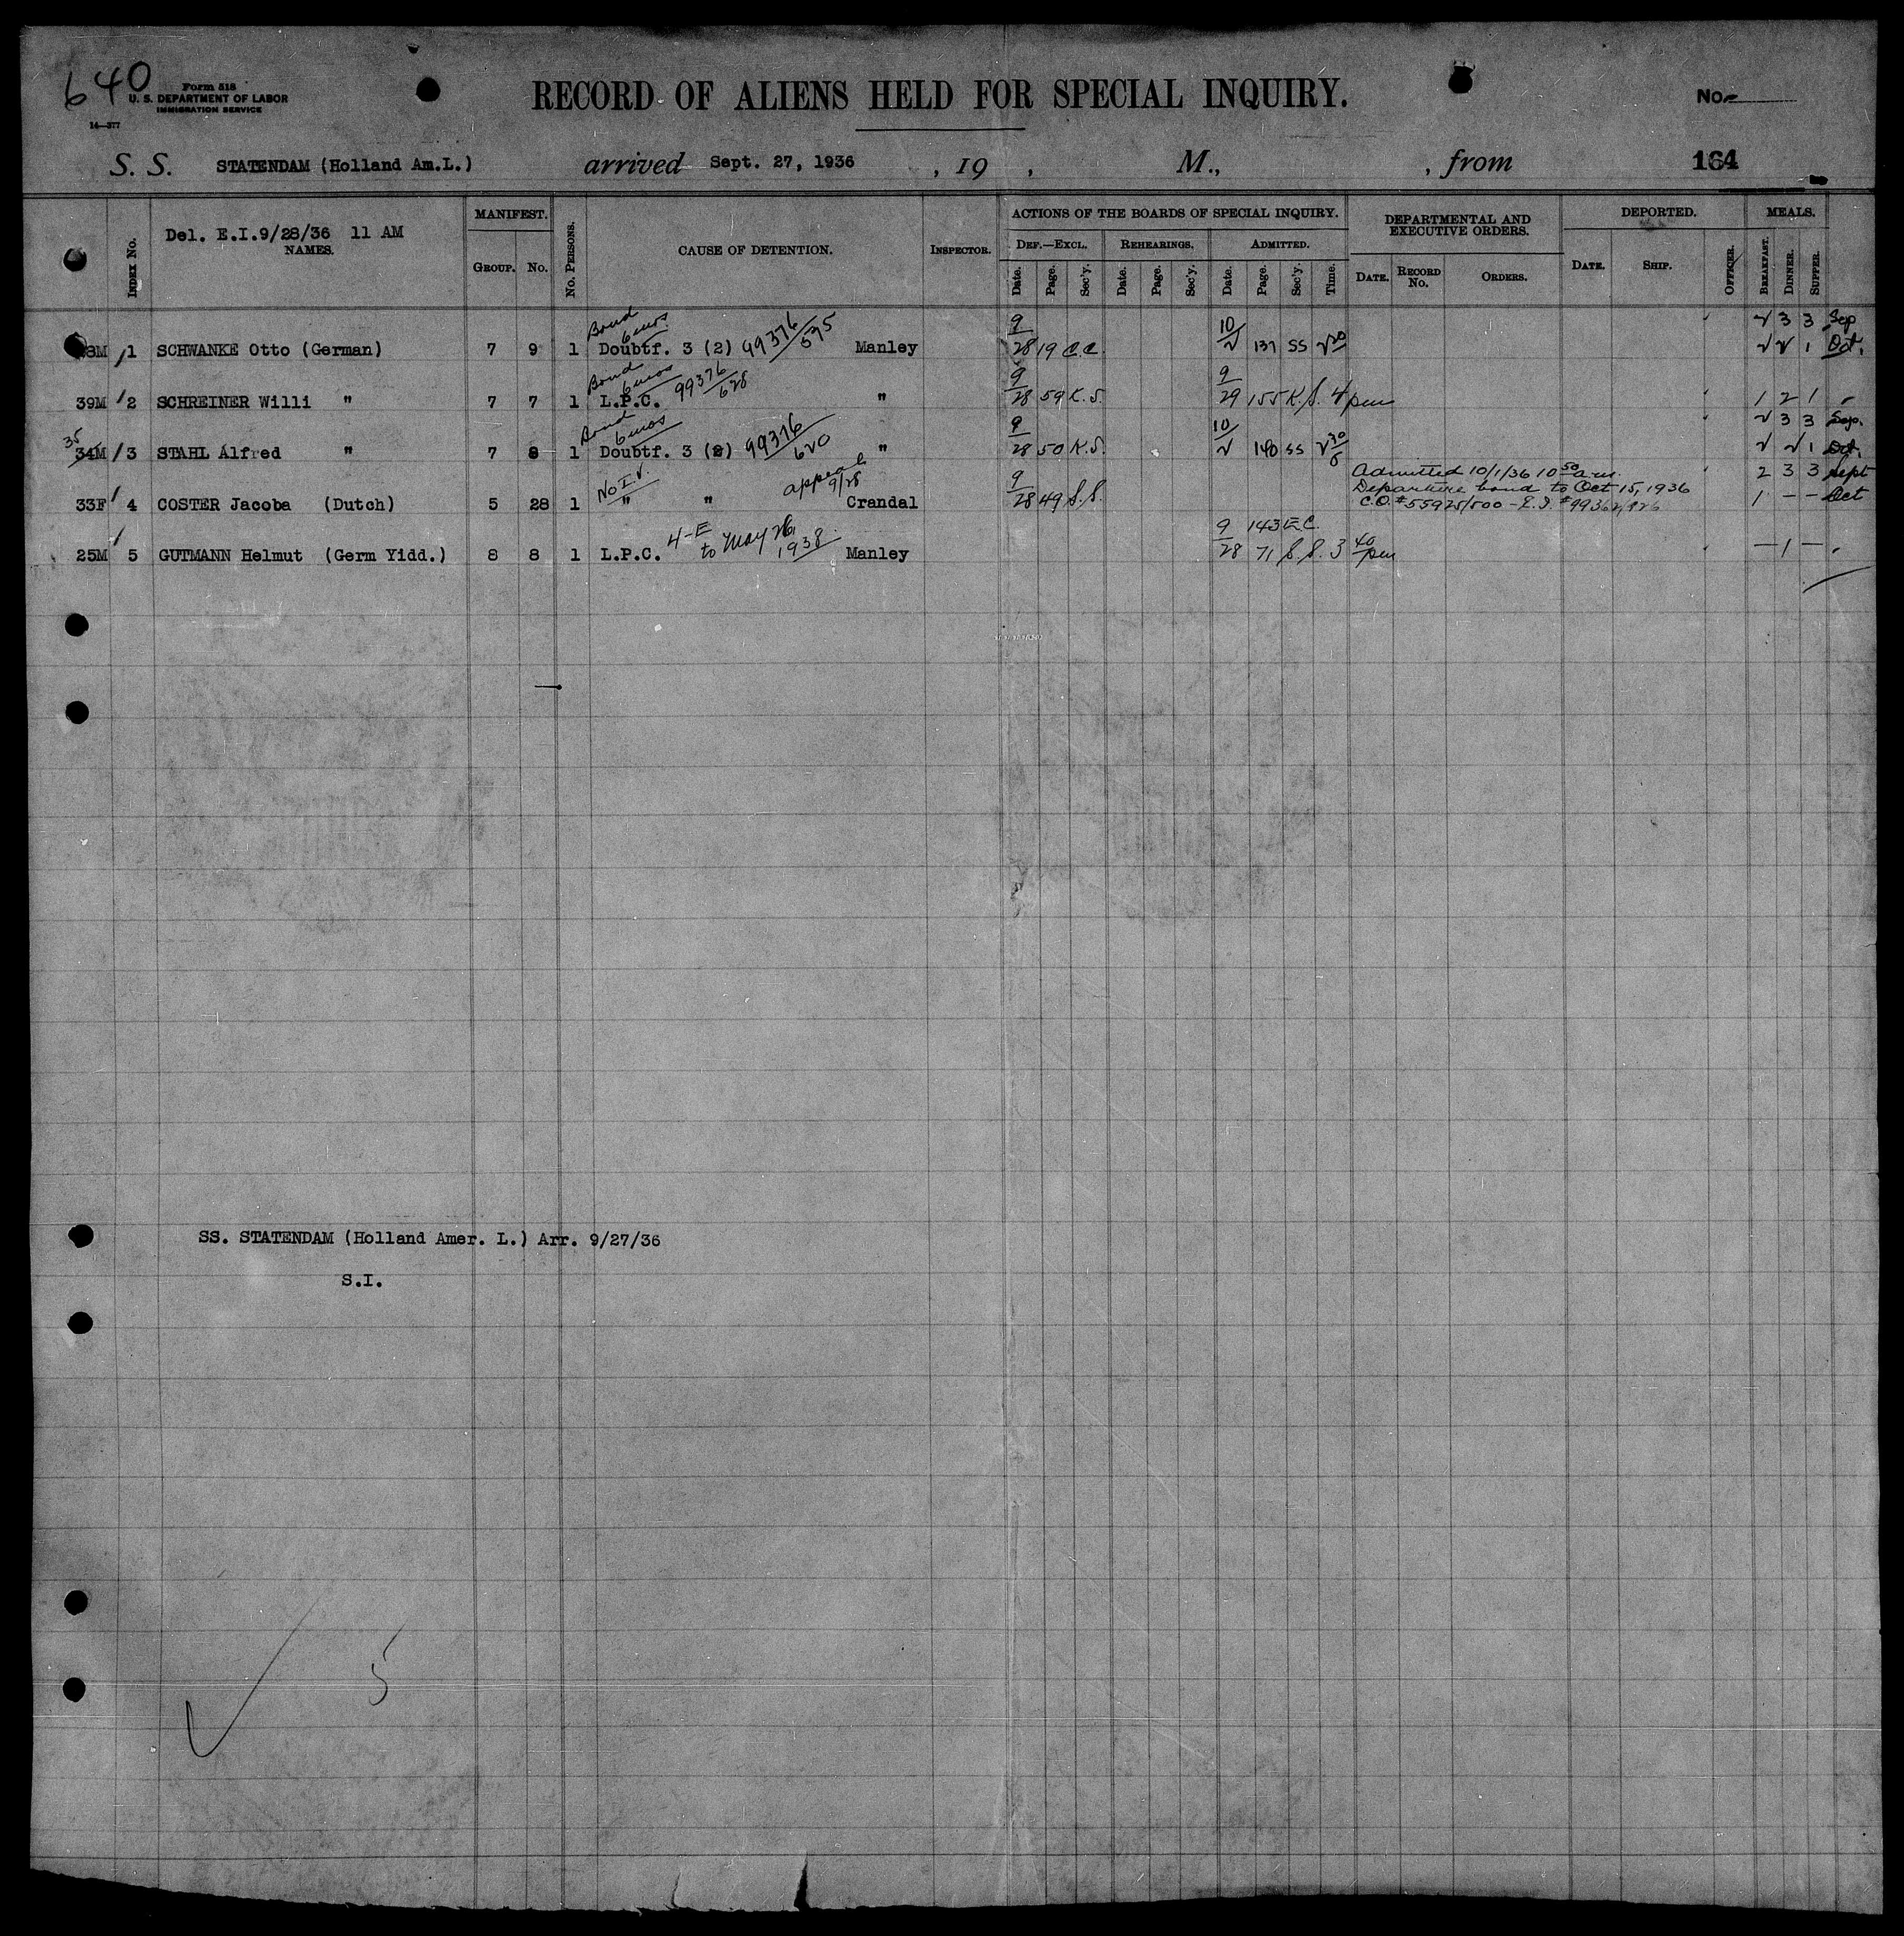 640
Form 518
U. S. DEPARTMENT OF LABOR
IMMIGRATION SERVICE
14—377
RECORD OF ALIENS HELD FOR SPECIAL INQUIRY.
No.
S. S. STATENDAM (Holland Am.L.) arrived Sept. 27, 1936 , 19 , M., , from 164
Del. E.I.9/28/36 11 AM
INDEX No. NAMES. MANIFEST. GROUP. No. No. PERSONS. CAUSE OF DETENTION. INSPECTOR. ACTIONS OF THE BOARDS OF SPECIAL INQUIRY. DEF.—EXCL. Date. Page. Sec'y. REHEARINGS. Date. Page. Sec'y. ADMITTED. Date. Page. Sec'y. Time. DEPARTMENTAL AND EXECUTIVE ORDERS. DATE. RECORD No. ORDERS. DEPORTED. DATE. SHIP. OFFICER. MEALS. BREAKFAST. DINNER. SUPPER.
Bond 6 mos. 9 10 2 3 3 Sep
8M 1 SCHWANKE Otto (German) 7 9 1 Doubtf. 3 (2) 99376/595 Manley 28 19 C.C. 2 137 SS 2 20 2 2 1 Oct.
Bond 6 mos 9 9
39M 2 SCHREINER Willi " 7 7 1 L.P.C. 99376/628 " 28 59 K.S. 29 155 K.S. 4 pm 1 2 1
Bond 6 mos 9 10 2 3 3 Sep.
35 34M 3 STAHL Alfred " 7 8 1 Doubtf. 3 (2) 99376/620 " 28 50 K.S. 2 140 SS 2 30 2 2 1 Oct.
No I.V. appeal 9/28 9 Admitted 10/1/36 10 50 a.m. 2 3 3 Sept
Departure bond to Oct 15, 1936
33F 4 COSTER Jacoba (Dutch) 5 28 1 " " Crandal 28 49 S.S. C.O. #55925/500 - E.I. #99362/926 1 — — Oct
4-E to May 26, 1938 9 143 E.C.
25M 5 GUTMANN Helmut (Germ Yidd.) 8 8 1 L.P.C. Manley 28 71 S.S. 3 40 pm — 1 —
SS. STATENDAM (Holland Amer. L.) Arr. 9/27/36
S.I.
5